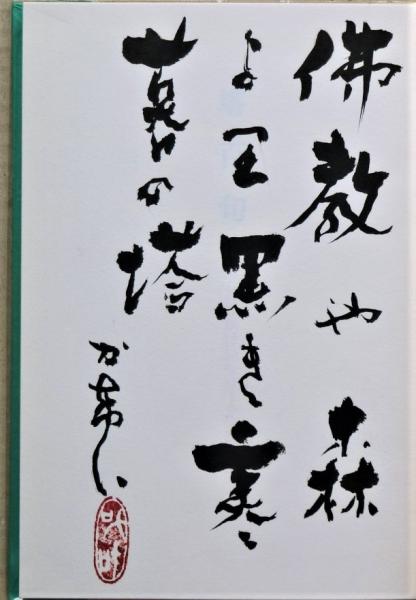 佛教や森
より黒き寒
暮の塔
かけい